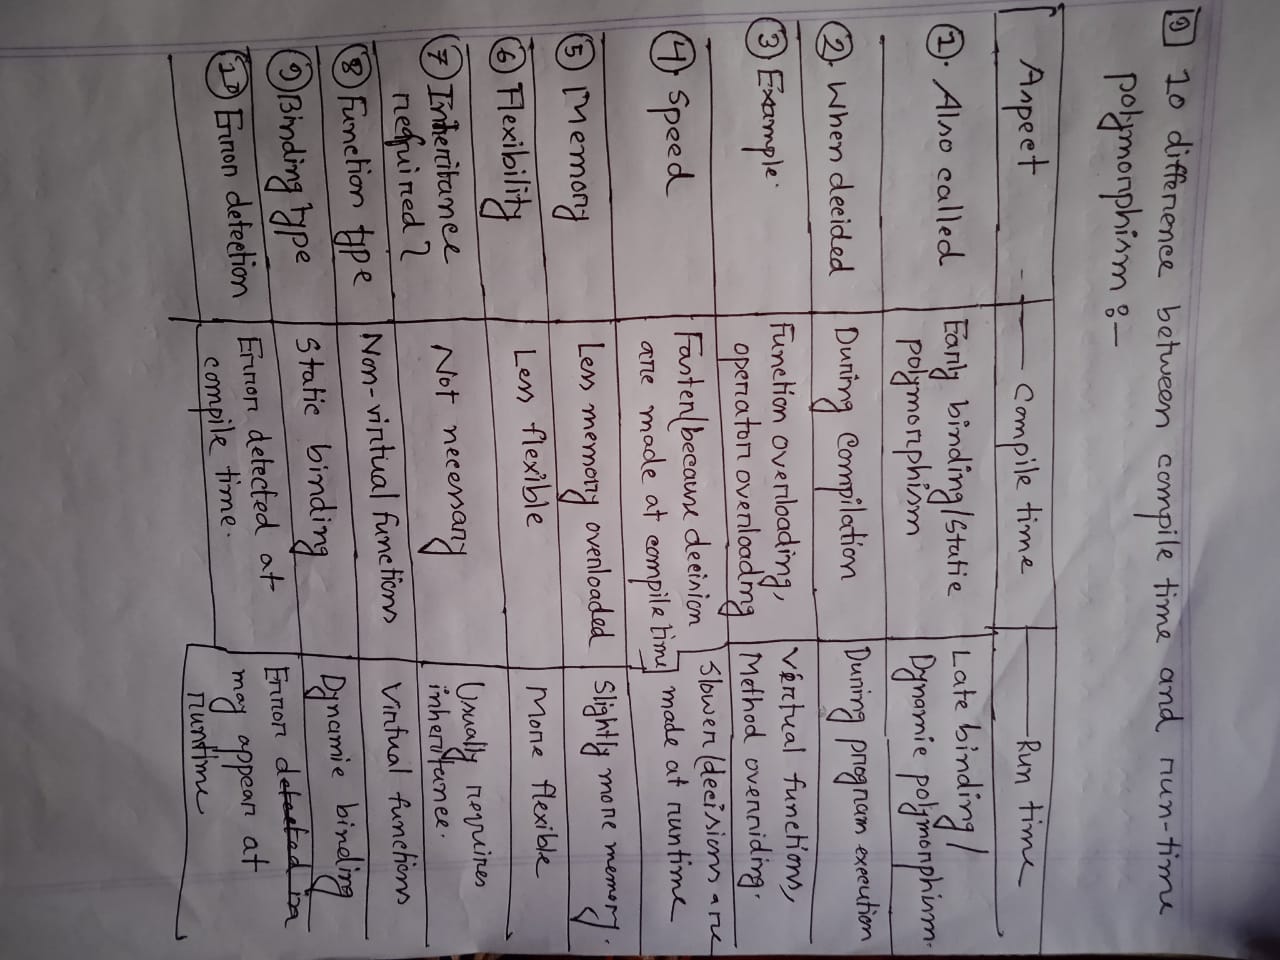 9 10 difference between compile time and run-time
polymorphism :-
Aspect Compile time Run time
① Also called Early binding/static polymorphism Late binding/ Dynamic polymorphism.
② When decided During compilation During program execution
③ Example. Function overloading, operator overloading Virtual functions, Method overriding.
④ Speed Faster(because decision are made at compile time) Slower(decisions are made at runtime
⑤ Memory Less memory overloaded Slightly more memory.
⑥ Flexibility Less flexible More flexible
⑦ Inheritance required? Not necessary Usually requires inheritance.
⑧ Function type Non-virtual functions Virtual functions
⑨ Binding type Static binding Dynamic binding
⑩ Error detection Error detected at compile time. Error detected in may appear at runtime